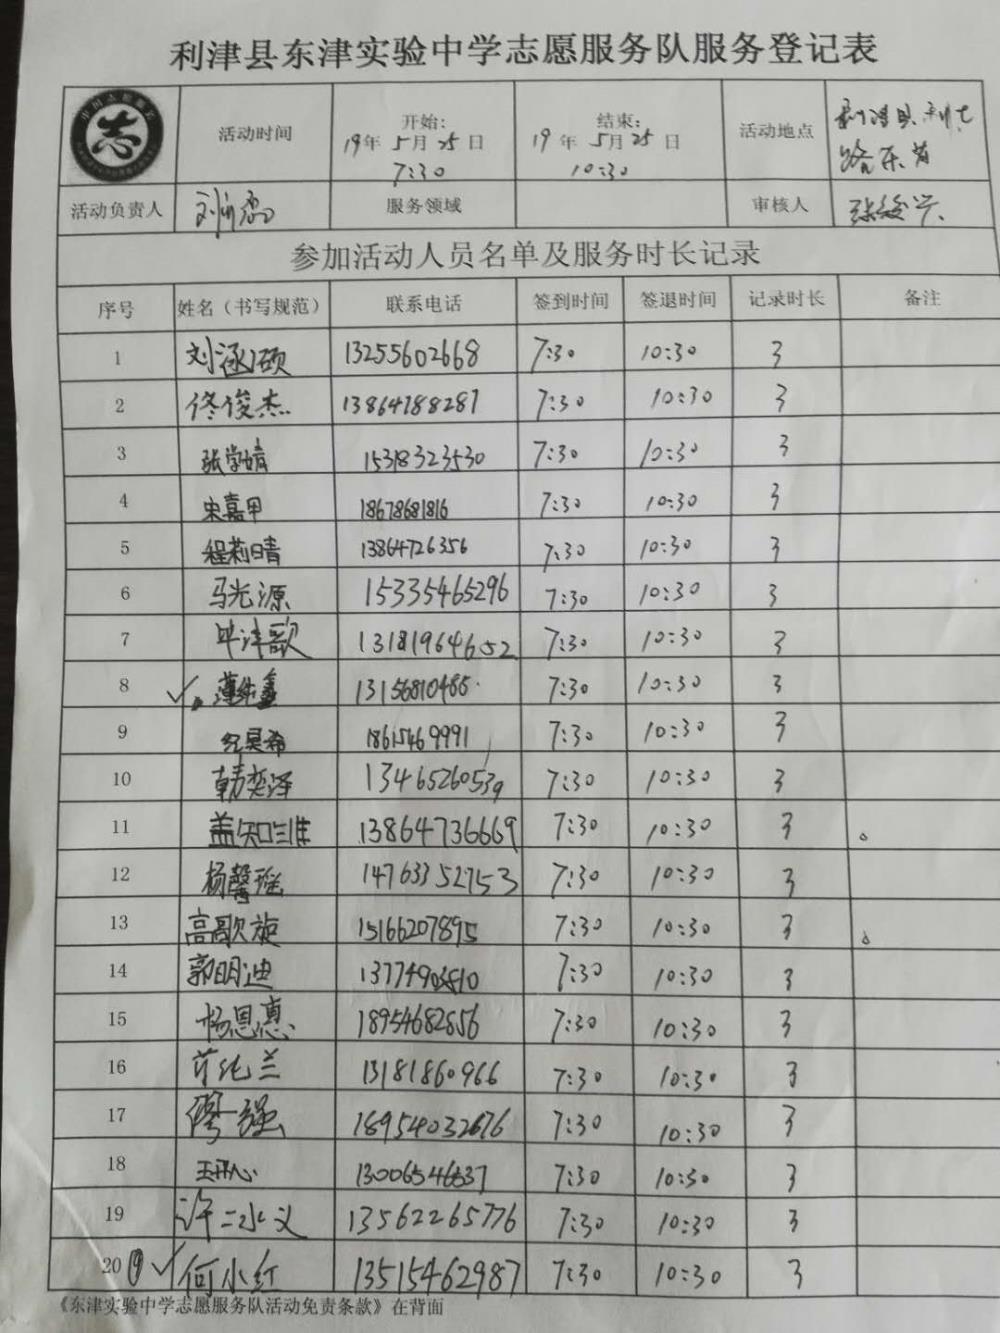 利津县东津实验中学志愿服务队服务登记表
志
活动时间 开始: 19年5月25日 7:30 结束: 19年5月25日 10:30 活动地点 利津县利七路东首
活动负责人 服务领域 审核人
参加活动人员名单及服务时长记录
序号 姓名（书写规范） 联系电话 签到时间 签退时间 记录时长 备注
1 刘涵硕 13255602668 7:30 10:30 3
2 佟俊杰 13864788287 7:30 10:30 3
3 张学婧 15318323530 7:30 10:30 3
4 宋嘉甲 18678681816 7:30 10:30 3
5 程莉晴 13864726356 7:30 10:30 3
6 马光源 15335465296 7:30 10:30 3
7 诗歌 13181964652 7:30 10:30 3
8 薄纯鑫 13156810486 7:30 10:30 3
9 纪昊希 18615469991 7:30 10:30 3
10 韩奕泽 13465260539 7:30 10:30 3
11 盖知维 13864736669 7:30 10:30 3
12 杨馨瑶 14763352753 7:30 10:30 3
13 高歌旋 15166207895 7:30 10:30 3
14 郭明迪 7:30 10:30 3
15 杨恩惠 18954682856 7:30 10:30 3
16 纯兰 13181860966 7:30 10:30 3
17 强 18954032676 7:30 10:30 3
18 王开心 13006546537 7:30 10:30 3
19 许二水义 13562265776 7:30 10:30 3
20 何小红 13515462987 7:30 10:30 3
《东津实验中学志愿服务队活动免责条款》在背面